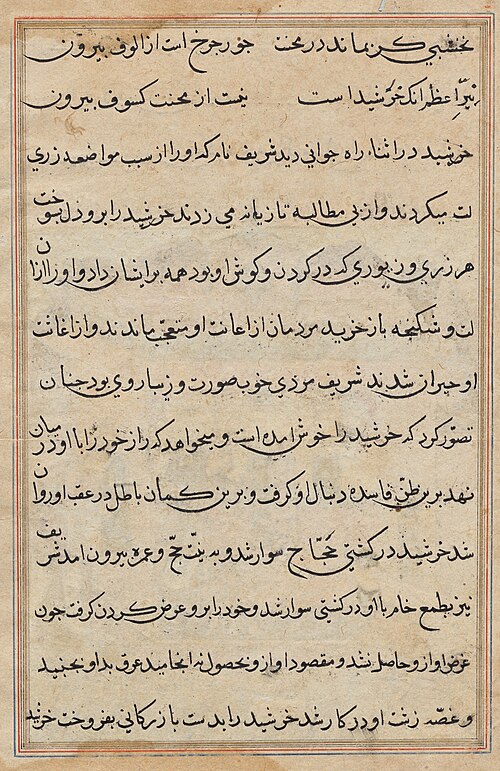 نخشبی کس نماند در محنت جور چرخ است از الوف بیرون
نیر اعظم انک خرشید است نیست از محنت کسوف بیرون
خرشید در اثناء راه جوانی دید شریف نام که او را از سبب مواضعه زری
لت میکردند و از پی مطالبه تازیانه می زدند خرشید را برو دل سوخت
هر زری و زیوری که در کردن و کوش او بود همه بر ایشان داد و او را از ان
لت و شکنجه باز خرید مردمان از اعانت او متعجب ماندند و از اغاثت
او حیران شدند شریف مردی خوب صورت و زیبا روی بود چنان
تصور کرد که خرشید را خوش امده است و میخواهد که راز خود را با او در میان
نهد برین ظن فاسده دنبال او کرفت و برین کمان باطل در عقب او روان
شد خرشید در کشتی حجاج سوار شد و به نیت حج و عمره بیرون امد شریف
نیز بطمع خام با او در کشتی سوار شد و خود را برو عرض کردن کرفت چون
غرض او ازو حاصل نشد و مقصود او ازو بحصول نه انجامید عرق بد او بجنبید
و غصه زشت او در کار شد خرشید را بدست بازرکانی بفروخت خرشید